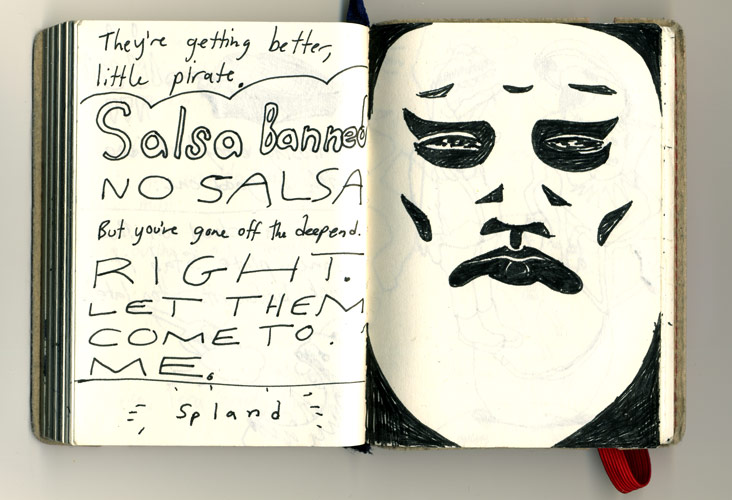 They're getting better,
little pirate.
Salsa banned
NO SALSA
But you've gone off the deepend.
RIGHT.
LET THEM
COME TO.
ME.
Spland